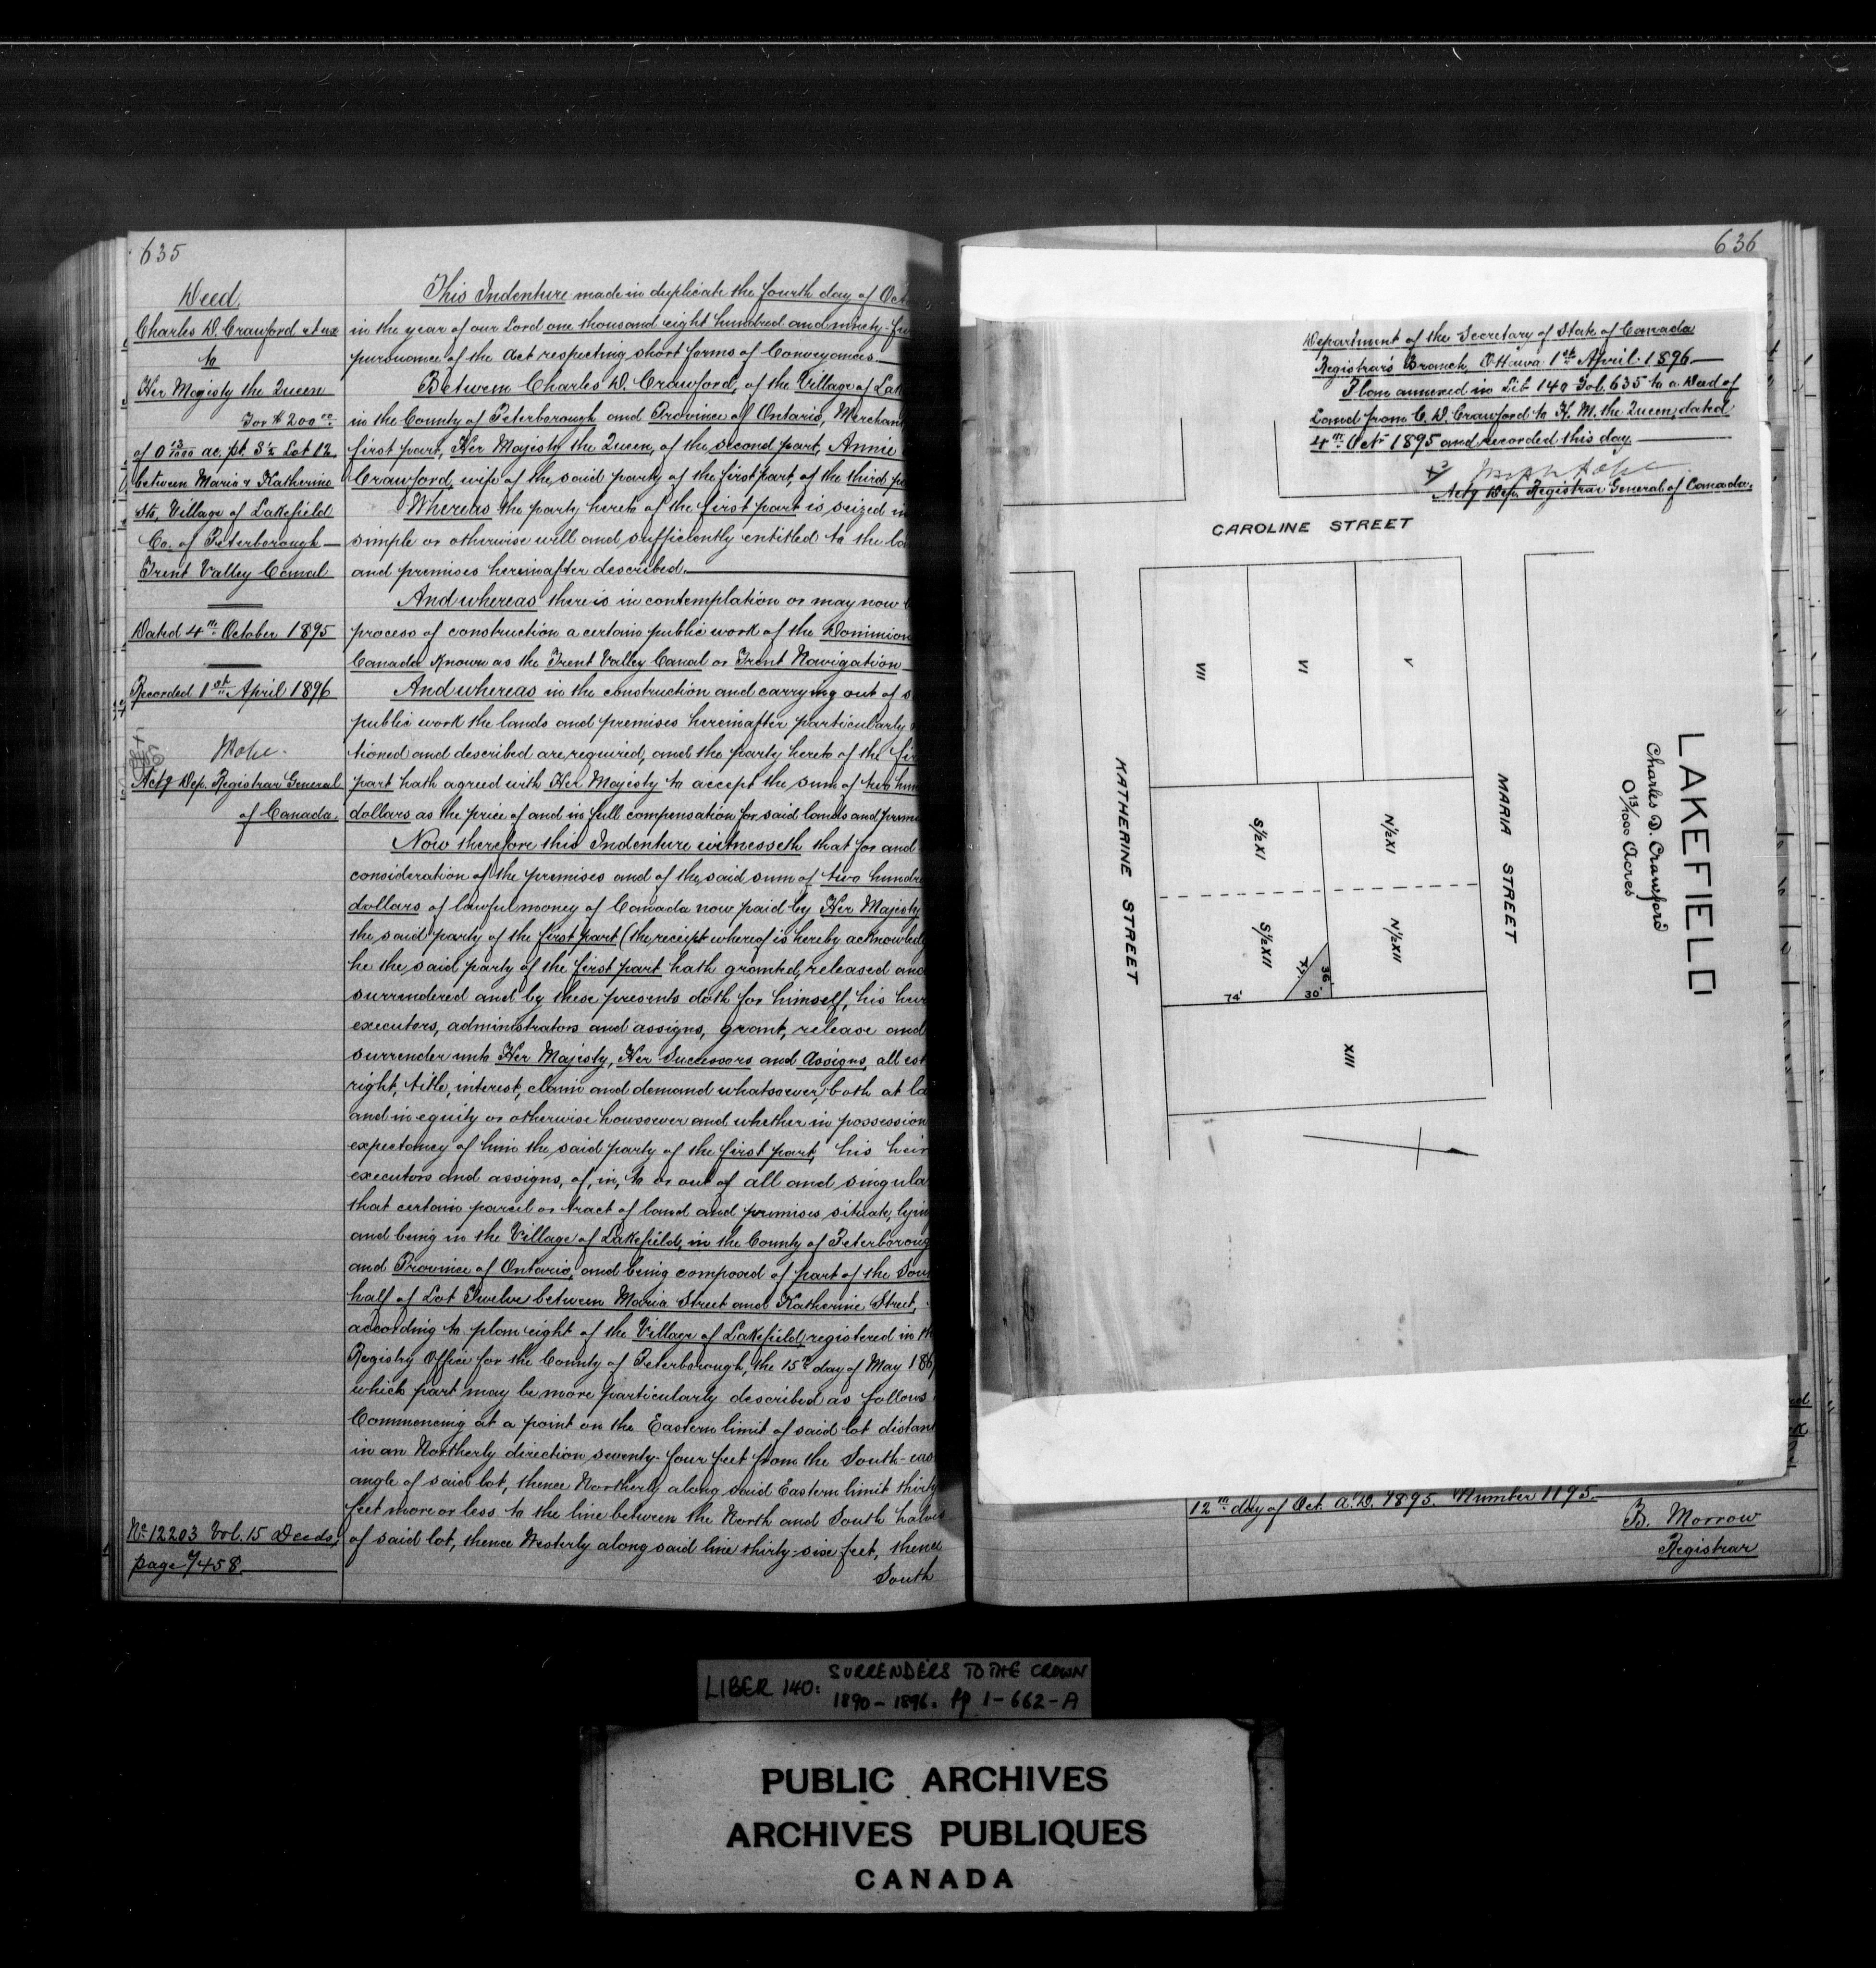 635
Deed
Charles D. Crawford et ux
to
Her Majesty the Queen
For $200.00
of 0 13/1000 ac. pt. S½ Lot 12
between Maria & Katherine
Sts, Village of Lakefield
Co. of Peterborough
Trent Valley Canal
Dated 4th October 1895
Recorded 1st April 1896
Actg Dep. Registrar General
of Canada.
No 12203 Vol. 15 Deeds,
page 458
This Indenture made in duplicate the fourth day of Oct
in the year of our Lord one thousand eight hundred and ninety-
pursuance of the Act respecting short forms of Conveyances.
Between Charles D. Crawford, of the Village of Lak
in the County of Peterborough and Province of Ontario, Merchant
first part, Her Majesty the Queen, of the second part, Annie
Crawford, wife of the said party of the first part, of the third p
Whereas the party hereto of the first part is seized in
simple or otherwise well and sufficiently entitled to the la
and premises hereinafter described.
And whereas there is in contemplation or may now b
process of construction a certain public work of the Dominion
Canada Known as the Trent Valley Canal or Trent Navigation
And whereas in the construction and carrying out of s
public work the lands and premises hereinafter particularly
tioned and described are required, and the party hereto of the fir
part hath agreed with Her Majesty to accept the sum of two hun
dollars as the price of and in full compensation for said lands and premi
Now therefore this Indenture witnesseth that for and
consideration of the premises and of the said sum of two hundre
dollars of lawful money of Canada now paid by Her Majesty
the said party of the first part (the receipt whereof is hereby acknowledg
he the said party of the first part hath granted, released and
surrendered and by these presents doth for himself, his heir
executors, administrators and assigns, grant, release and
surrender unto Her Majesty, Her Successors and Assigns, all est
right, title, interest, claim and demand whatsoever, both at la
and in equity or otherwise howsoever and whether in possession
expectancy of him the said party of the first part, his heir
executors and assigns, of, in, to or out of all and singula
that certain parcel or tract of land and premises situate, lyin
and being in the Village of Lakefield, in the County of Peterboroug
and Province of Ontario, and being composed of part of the Sou
half of Lot Twelve between Maria Street and Katherine Street,
according to plan eight of the Village of Lakefield, registered in th
Registry Office for the County of Peterborough, the 15th day of May 186
which part may be more particularly described as follows
Commencing at a point on the Eastern limit of said lot distant
in an Northerly direction seventy-four feet from the South-eas
angle of said lot, thence Northerly along said Eastern limit thirty
feet more or less to the line between the North and South halves
of said lot, thence Westerly along said line thirty-six feet, thence
South
636
Department of the Secretary of State of Canada
Registrar's Branch, Ottawa 1st April 1896
Plan annexed in Lib 140 Fol. 635 to a Deed of
Land from C. D. Crawford to H. M. the Queen, dated
4th Oct 1895 and recorded this day.
Actg Dep. Registrar General of Canada.
CAROLINE STREET
VII
VI
V
KATHERINE STREET
MARIA STREET
S½XI
N½XI
S½XII
N½XII
74'
47'
36'
30'
XIII
LAKEFIELD
Charles D. Crawford
0 13/1000 Acres
12th day of Oct. A.D. 1895. Number 1195.
B. Morrow
Registrar
LIBER 140: SURRENDERS TO THE CROWN
1890-1896. pp 1-662-A
PUBLIC ARCHIVES
ARCHIVES PUBLIQUES
CANADA